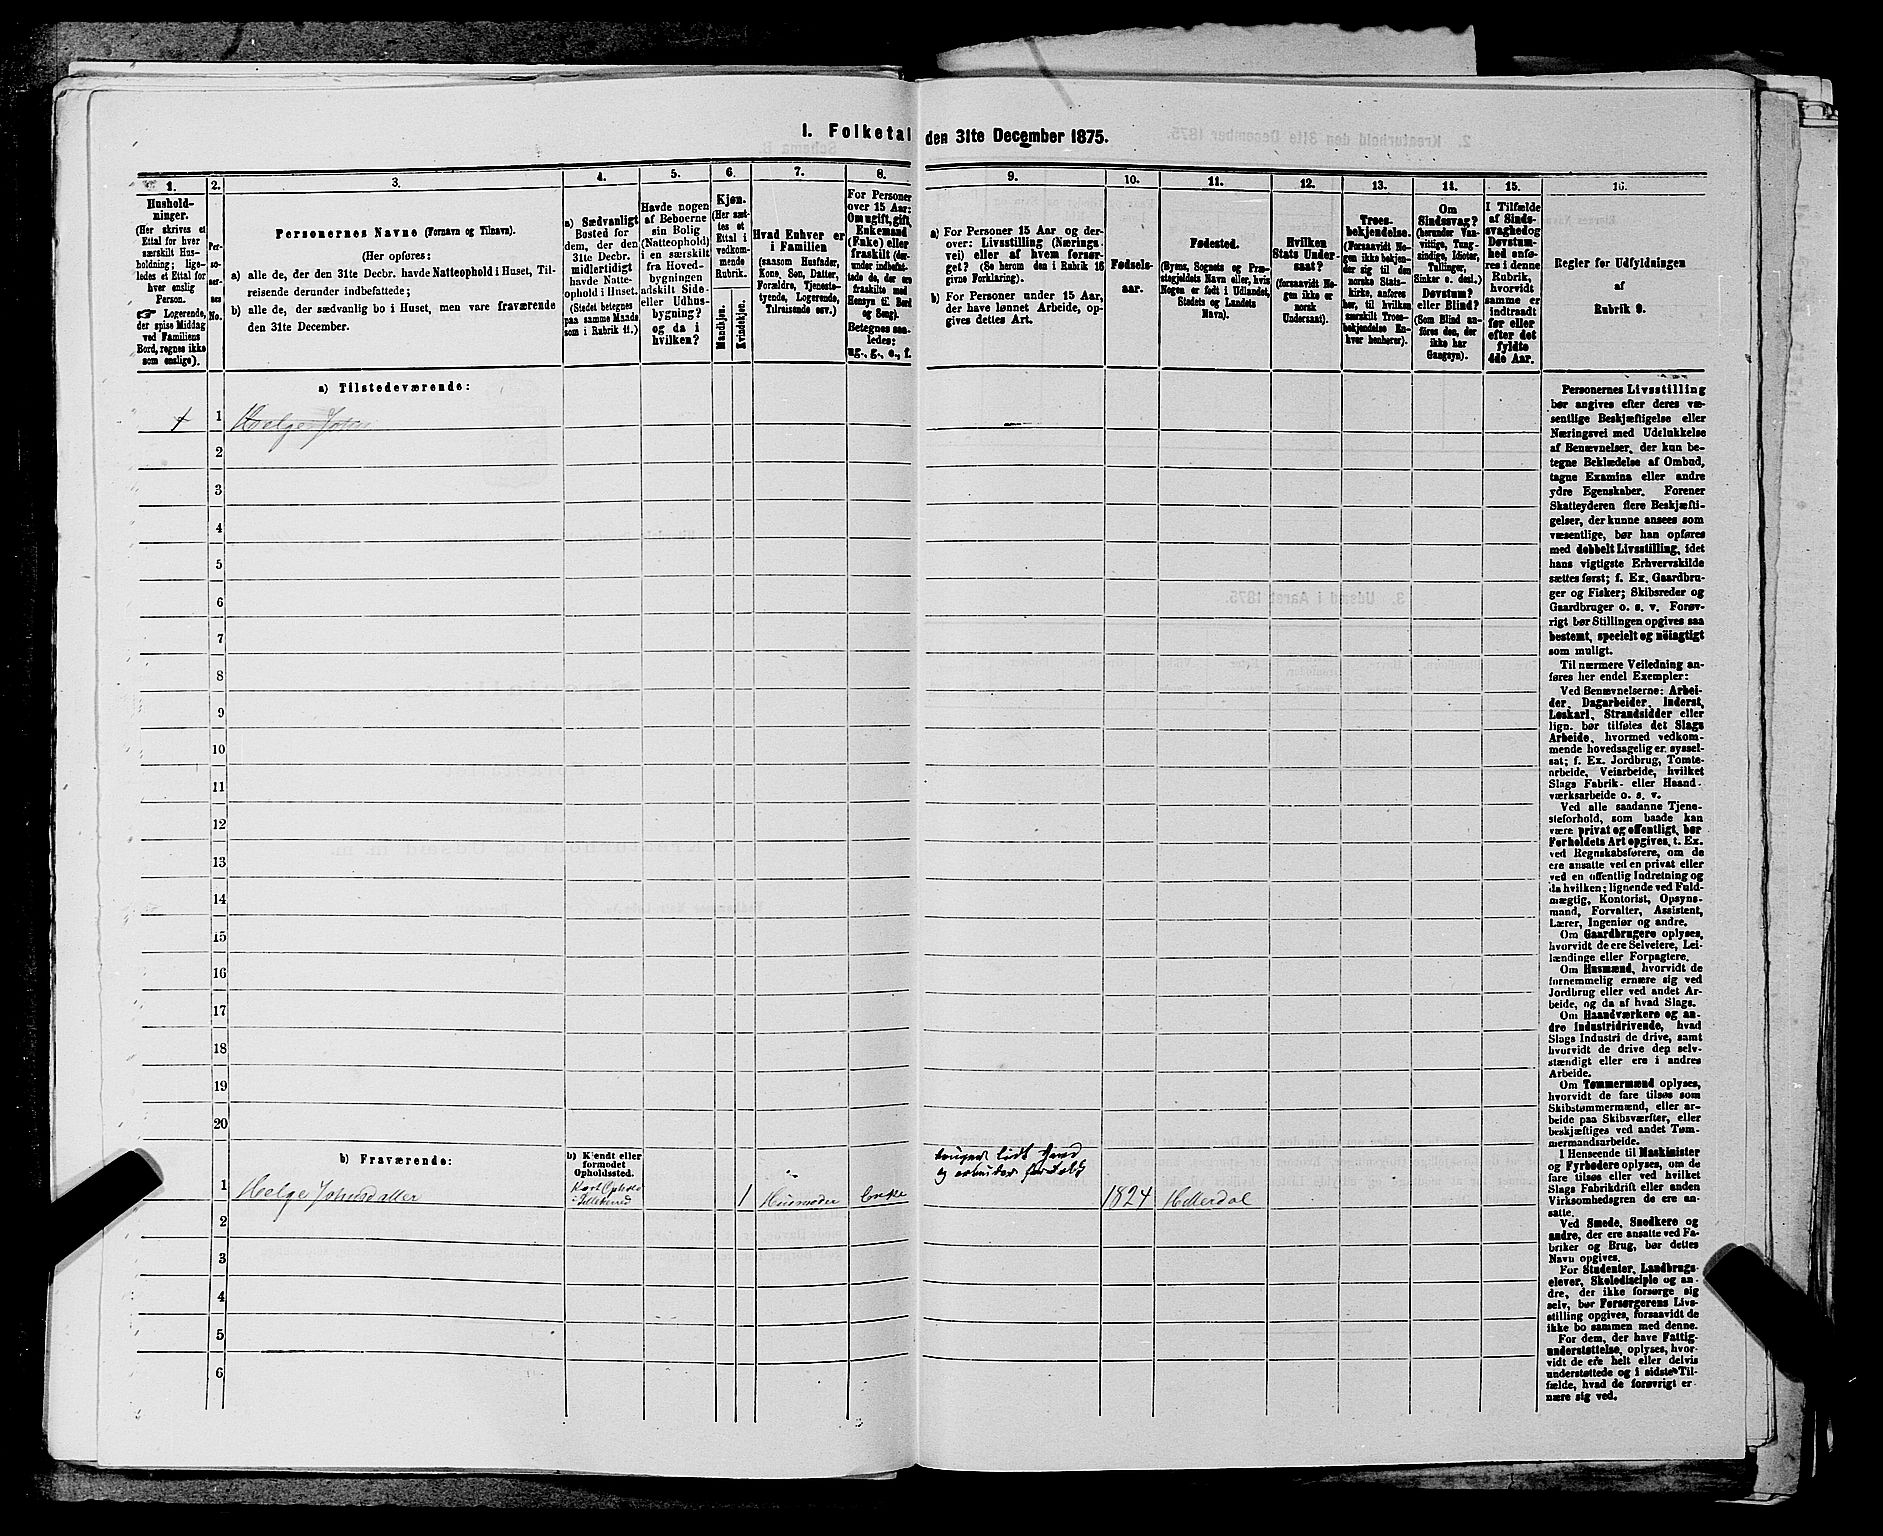 1. Folketal den 31te December 1875.
1.
2.
3.
4.
5.
6.
7.
8.
9.
10.
11.
12.
13.
14.
15.
16.
Hushold-
ninger.
(Her skrives et
Ettal for hver
særskilt Hus-
holdning; lige-
ledes et Ettal for
hver enslig
Person.
☞ Logerende,
der spise Middag
ved Familiens
Bord, regnes ikke
som enslige).
Per-
so-
ner-
nes
No.
Personernes Navne (Fornavn og Tilnavn).
(Her opføres:
a) alle de, der den 31te Decbr. havde Natteophold i Huset, Til-
reisende derunder indbefattede;
b) alle de, der sædvanlig bo i Huset, men vare fraværende
den 31te December.
a) Sædvanligt
Bosted for
dem, der den
31te Decbr.
midlertidigt
havde Natte-
ophold i Huset.
(Stedet betegnes
paa samme Maade
som i Rubrik 11.)
Havde nogen
af Beboerne
sin Bolig
(Natteophold)
i en særskilt
fra Hoved-
bygningen
adskilt Side-
eller Udhus-
bygning?
og da i
hvilken?
Kjøn.
(Her sæt-
tes et
Ettal i
vedkom-
mende
Rubrik.
Mandkjøn.
Kvindekjøn.
Hvad Enhver er
i Familien
(saasom Husfader,
Kone, Søn, Datter,
Forældre, Tjeneste-
tyende, Logerende,
Tilreisende osv.)
For Personer
over 15 Aar:
Om ugift, gift,
Enkemand
(Enke) eller
fraskilt (der-
under indbefat-
tede de, der ere
fraskilte med
Hensyn til Bord
og Seng).
Betegnes saa-
ledes:
ug., g., e., f.
a) For Personer 15 Aar og der-
over: Livsstilling (Nærings-
vei) eller af hvem forsør-
get? (Se herom den i Rubrik 16
givne Forklaring).
b) For Personer under 15 Aar,
der have lønnet Arbeide, op-
gives dettes Art.
Fødsels-
aar.
Fødested.
(Byens, Sognets og Præ-
stegjeldets Navn eller, hvis
Nogen er født i Udlandet,
Stedets og Landets
Navn).
Hvilken
Stats Under-
saat?
(forsaavidt No-
gen ikke er
norsk
Undersaat).
Troes-
bekjendelse.
(Forsaavidt No-
gen ikke bekjen-
der sig til den
norske Stats-
kirke, anføres
her, til hvilken
særskilt Troes-
bekjendelse En-
hver henhører).
Om
Sindssvag?
(herunder Van-
vittige, Tung-
sindige, Idioter,
Tullinger,
Sinker o. desl.)
Døvstum?
eller Blind?
(Som Blind an-
føres den, der
ikke har
Gangsyn).
I Tilfælde
af Sinds-
svaghed og
Døvstum-
hed anfø-
res i denne
Rubrik,
hvorvidt
samme er
indtraadt
før eller
efter det
fyldte
4de Aar.
Regler for Udfyldningen
af
Rubrik 9.
a) Tilstedeværende:
1 Helge Johns
2
3
4
5
6
7
8
9
10
11
12
13
14
15
16
17
18
19
20
b) Fraværende:
b) Kjendt eller
formodet
Opholdssted.
1 Helge Johnsdatter
1
Husmoder
Enke
bruger lidt Jord
og arbeider for Folk
1824
Hitterdal
2
3
4
5
6
Personernes Livsstilling
bør angives efter deres væ-
sentlige Beskjæftigelse eller
Næringsvei med Udelukkelse
af Benævnelser, der kun be-
tegne Beklædelse af Ombud,
tagne Examina eller andre
ydre Egenskaber. Forener
Skatteyderen flere Beskjæfti-
gelser, der kunne ansees som
væsentlige, bør han opføres
med dobbelt Livsstilling, idet
hans vigtigste Erhvervskilde
sættes først; f. Ex. Gaardbru-
ger og Fisker; Skibsreder og
Gaardbruger o. s. v. Forøv-
rigt bør Stillingen opgives saa
bestemt, specielt og nöiagtigt
som muligt.
Til nærmere Veiledning an-
føres her endel Exempler:
Ved Benævnelserne: Arbei-
der, Dagarbeider, Inderst,
Løskarl, Strandsidder eller
lign. bør tilføies det Slags
Arbeide, hvormed vedkom-
mende hovedsagelig er syssel-
sat; f. Ex. Jordbrug, Tomte-
arbeide, Veiarbeide, hvilket
Slags Fabrik- eller Haand-
værksarbeide o. s. v.
Ved alle saadanne Tjene-
steforhold, som baade kan
være privat og offentligt, bør
Forholdets Art opgives, f. Ex.
ved Regnskabsførere, om de
ere ansatte ved en privat eller
ved en offentlig Indretning og
da hvilken; lignende ved Fuld-
mægtig, Kontorist, Opsyns-
mand, Forvalter, Assistent,
Lærer, Ingeniør og andre.
Om Gaardbrugere oplyses,
hvorvidt de ere Selveiere, Lei-
lændinge eller Forpagtere.
Om Husmænd, hvorvidt de
fornemmelig ernære sig ved
Jordbrug eller ved andet Ar-
beide, og da af hvad Slags.
Om Haandværkere og an-
dre Industridrivende, hvad
Slags Industri de drive, samt
hvorvidt de drive den selv-
stændigt eller ere i andres
Arbeide.
Om Tømmermænd oplyses,
hvorvidt de fare tilsøs som
Skibstømmermænd, eller ar-
beide paa Skibsværfter, eller
beskjæftiges ved andet Tøm-
mermandsarbeide.
I Henseende til Maskinister
og Fyrbødere oplyses, om de
fare tilsøs eller ved hvilket
Slags Fabrikdrift eller anden
Virksomhedsgren de ere an-
satte.
Ved Smede, Snedkere og
andre, der ere ansatte ved Fa-
briker og Brug, bør dettes
Navn opgives.
For Studenter, Landbrugs-
elever, Skoledisciple og an-
dre, der ikke forsørge sig
selv, bør Forsørgerens Livs-
stilling opgives, forsaavidt de
ikke bo sammen med denne.
For dem, der have Fattig-
understøttelse, oplyses, hvor-
vidt de ere helt eller delvis
understøttede og i sidste Til-
fælde, hvad de forøvrigt er-
nære sig ved.